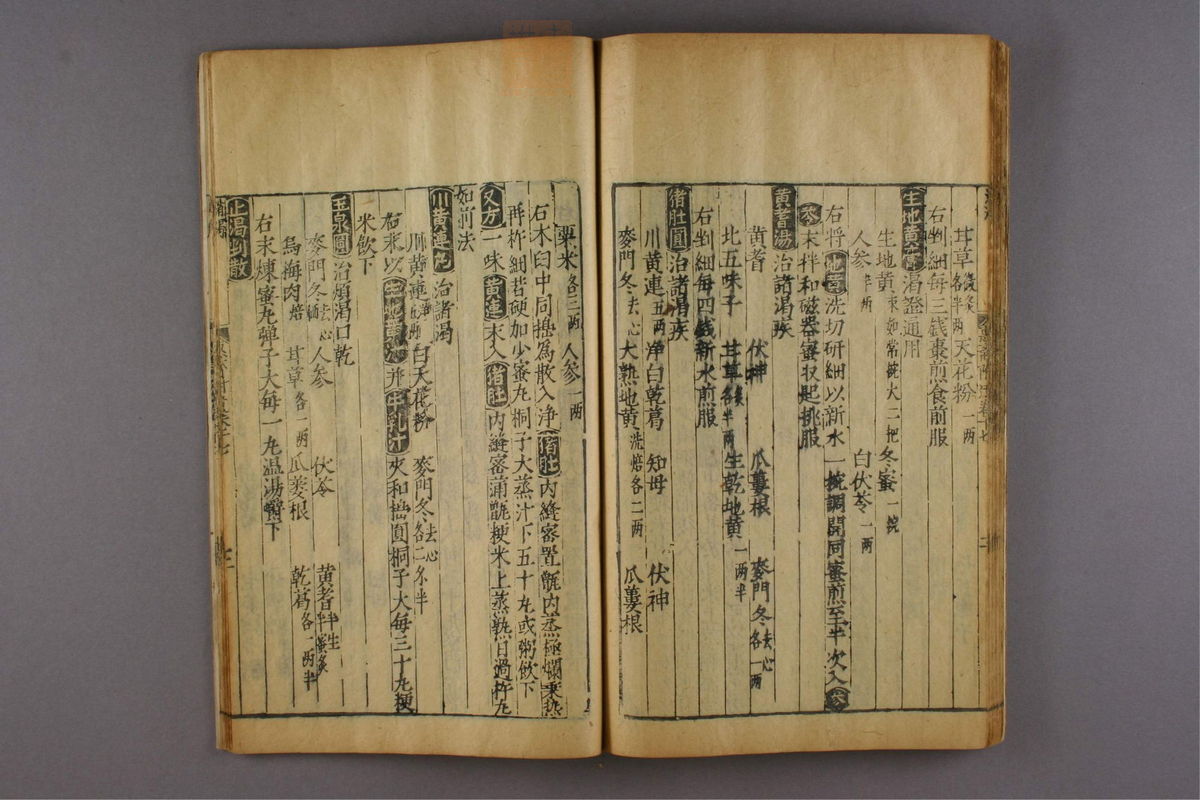 甘草各半两天花粉一两
右剉細每三錢棗煎食前服
生地黄膏渴證通用
生地黄束如常碗大二把冬蜜一碗
人参半两白伏苓一两
右将地黄洗切研細以新水一碗調開同蜜煎至半次入参
苓末拌和磁器蜜収起挑服
黄耆湯治諸渴疾
黄耆伏神瓜蔞根麥門冬去心各一两
北五味子甘草炙各半两生乾地黄一两半
右剉細每四錢新水煎服
猪肚圓治諸渴疾
川黄連五两净白乾葛知母伏神
麥門冬去心大熟地黄洗焙各二两瓜蔞根
粟米各三两人参一两
右木臼中同擣為散入浄猪肚内縫密置甑内蒸極爛乗熱
再杵細若硬加少蜜丸桐子大蒸汁下五十丸或粥飲下
又方一味黄連末入猪肚内縫密蒲甑粳米上蒸熟日過杵丸
如前法
川黄連丸治諸渴
川黄連五两净白天花粉麥門冬去心各二分半
右末以生地黄汁并牛乳汁夾和擣圓桐子大每三十丸粳
米飲下
玉泉圓治煩渴口乾
麥門冬去心人参伏苓黄耆半生半蜜炙
烏梅肉焙甘草各一两瓜蔞根乾葛各一两半
右末煉蜜丸弹子大每一丸温湯嚼下
止渴剉散